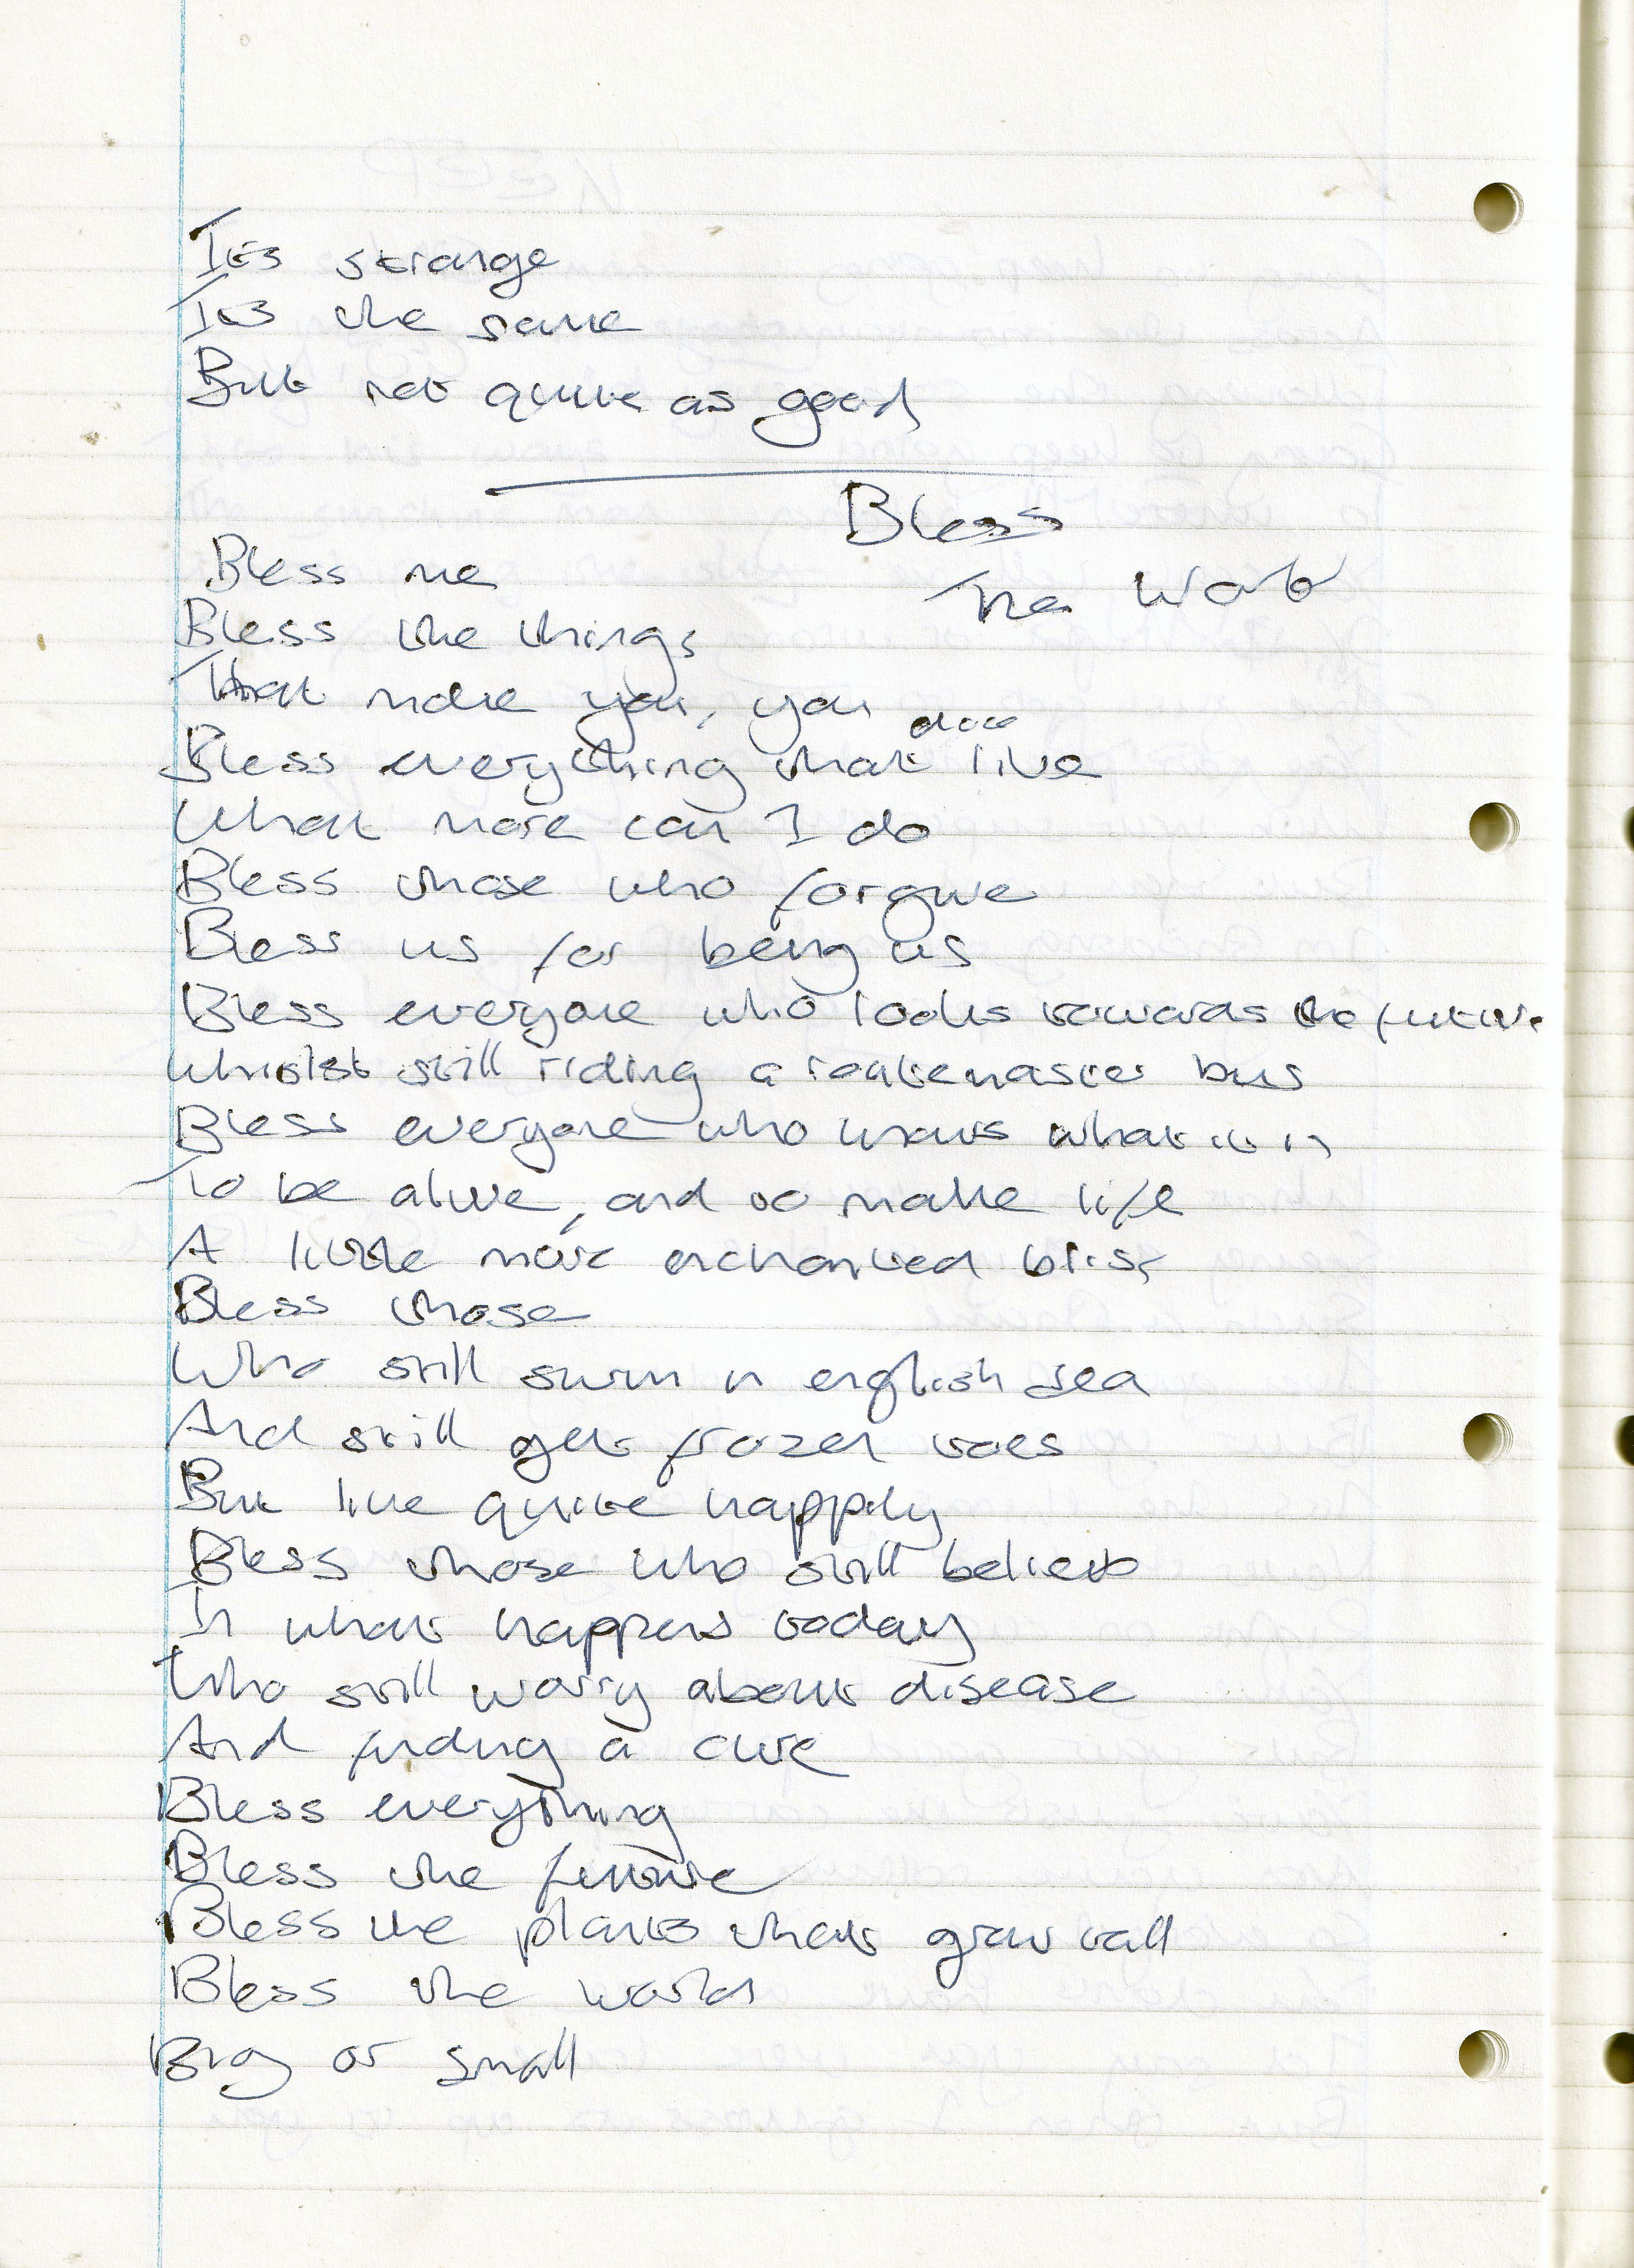 Its strange
Its the same
But not quite as good
Bless
The World
Bless me
Bless the things
That make you, you
Bless everything that live
What more can I do
Bless those who forgive
Bless us for being us
Bless everyone who looks towards the future
Whilst still riding a routemaster bus
Bless everyone who knows what it is
To be alive, and to make life
A little more enchanted bliss
Bless those
Who still swim in english sea
And still get frozen toes
But live quite happily
Bless those who still believe
In what happens today
Who still worry about disease
And finding a cure
Bless everything
Bless the future
Bless the plants that grow tall
Bless the world
Big or small